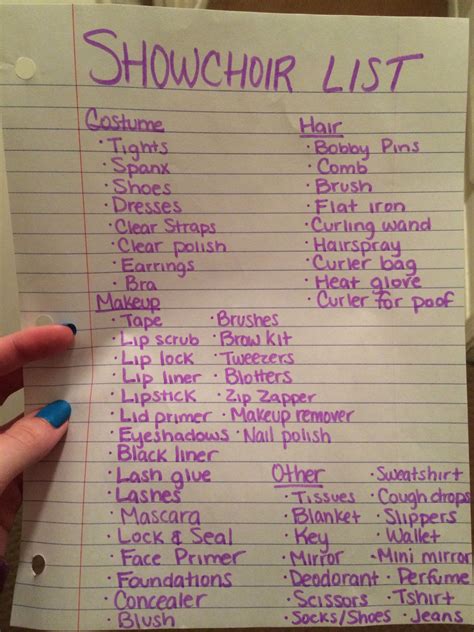 SHOWCHOIR LIST
Costume
· Tights
· Spanx
· Shoes
· Dresses
· Clear Straps
· Clear polish
· Earrings
· Bra
Hair
· Bobby Pins
· Comb
· Brush
· Flat iron
· Curling wand
· Hairspray
· Curler bag
· Heat glove
· Curler for poof
Makeup
· Tape · Brushes
· Lip scrub · Brow kit
· Lip lock · Tweezers
· Lip liner · Blotters
· Lipstick · Zip Zapper
· Lid primer · Makeup remover
· Eyeshadows · Nail polish
· Black liner
· Lash glue
· Lashes
· Mascara
· Lock & Seal
· Face Primer
· Foundations
· Concealer
· Blush
Other · Sweatshirt
· Tissues · Cough drops
· Blanket · Slippers
· Key · Wallet
· Mirror · Mini mirror
· Deodorant · Perfume
· Scissors · Tshirt
· Socks/Shoes · Jeans